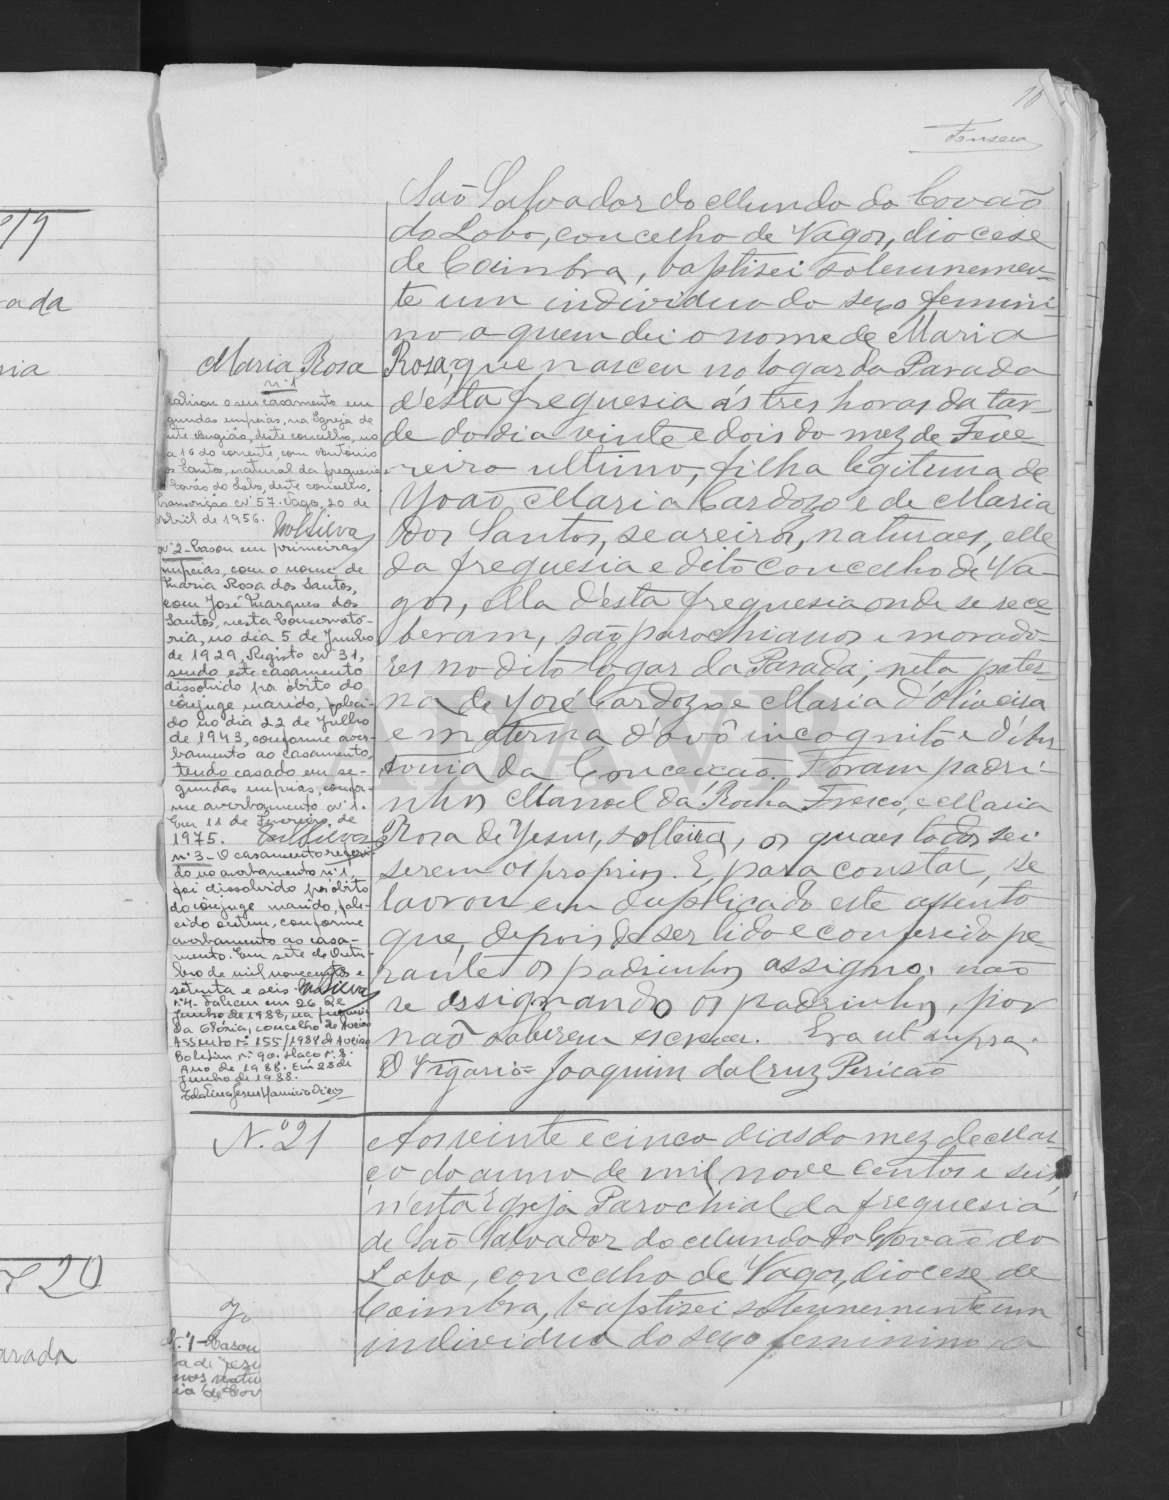 10
Fonseca
º 19
rada
ria
º 20
arada
São Salvador do Mundo do Covão
do Lobo, concelho de Vagos, diocese
de Coimbra, baptisei solemnemen-
te um individuo do sexo femini-
no a quem dei o nome de Maria
Rosa, que nasceu no logar da Parada
d'esta freguesia ás tres horas da tar-
de do dia vinte e dois do mez de Feve-
reiro ultimo, filha legitima de
João Maria Cardozo e de Maria
dos Santos, seareiros, naturaes, elle
da freguesia e dito concelho de Va-
gos, ella d'esta freguesia onde se rece-
beram, são parochianos e morado-
res no dito logar da Parada; neta pater-
na de José Cardozo e Maria d'Oliveira
e materna d'avô incognito e d'An-
tonia da Conceicão. Foram padri-
nhos Manoel da Rocha Fresco, e Maria
Rosa de Jesus, solteira, os quaes todos sei
serem os proprios. E para constar, se
lavrou em duplicado este assento
que, depois de ser lido e conferido pe-
rante os padrinhos assigno, não
se assignando os padrinhos, por
não saberem escrever. Era ut supra.
O Vigario = Joaquim da Cruz Pericão
Maria Rosa
nº 1
realizou o seu casamento em
segundas nupcias, na Igreja de
deste concelho, no
dia 16 do corrente, com António
dos Santos, natural da freguesia
Covão do Lobo, deste concelho.
Transcrição nº 57. Vagos, 20 de
Abril de 1956.
nº 2 - Casou em primeiras
nupcias, com o nome de
Maria Rosa dos Santos,
com José Marques dos
Santos, nesta Conservató-
ria, no dia 5 de Junho
de 1929, Registo nº 31,
sendo este casamento
dissolvido por óbito do
cônjuge marido, faleci-
do no dia 22 de Julho
de 1943, conforme aver-
bamento ao casamento,
tendo casado em se-
gundas nupcias, confor-
me averbamento nº 1.
Em 11 de Fevereiro de
1975.
nº 3 - O casamento referi-
do no averbamento nº 1,
foi dissolvido por óbito
do cônjuge marido, fale-
cido ontem, conforme
averbamento ao casa-
mento. Em sete de Outu-
bro de mil novecentos e
setenta e seis.
Nº 4 - Faleceu em 26 de
Junho de 1988, na freguesia
da Glória, concelho de Aveiro
Assento nº 155/1988 de Aveiro
Boletim nº 90. Maço nº 8.
Ano de 1988. Em 28 de
Junho de 1988.
ADAVR
N.º 21
Aos vinte e cinco dias do mez de Mar-
ço do anno de mil nove centos e seis,
n'esta Egreja Parochial da freguesia
de São Salvador do Mundo do Covão do
Lobo, concelho de Vagos, diocese de
Coimbra, baptisei solemnemente um
individuo do sexo feminino a
Jo
N.º 1 - Casou